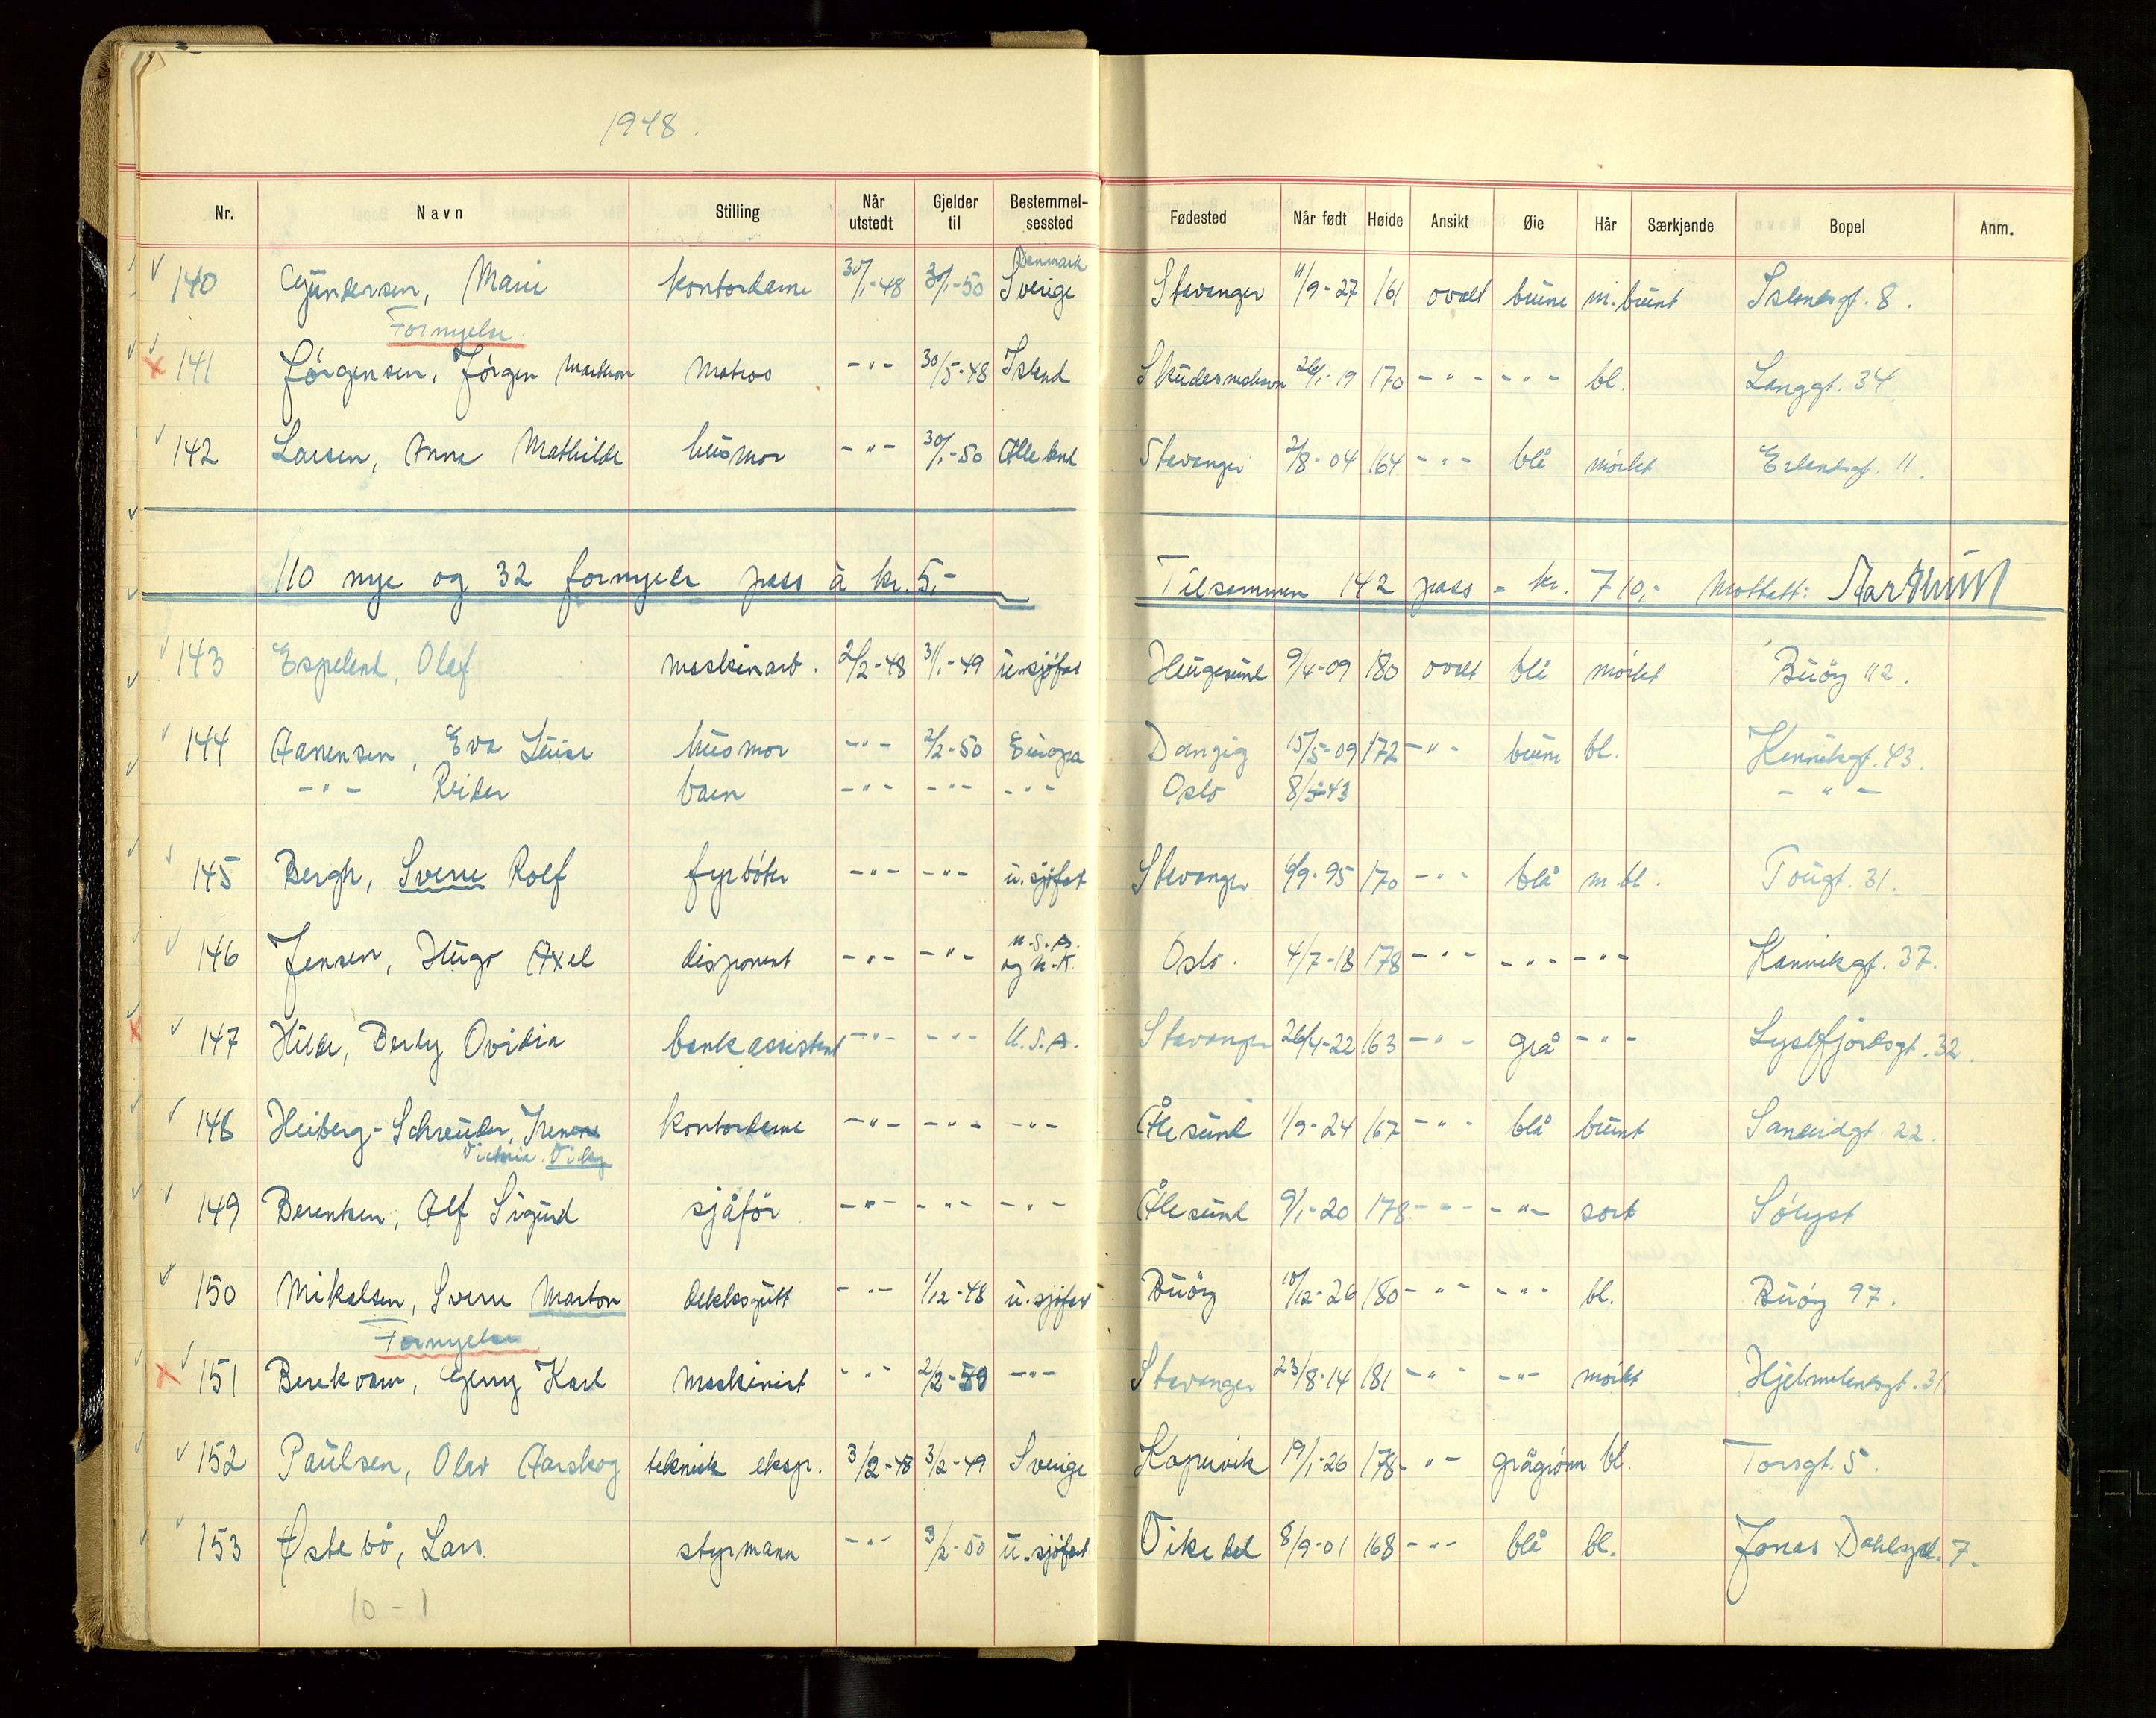 1948.
Nr. Navn Stilling Når utstedt Gjelder til Bestemmelsessted Fødested Når født Høide Ansikt Øie Hår Særkjende Bopel Anm.
Danmark
140 Gundersen, Marie kontordame 30/1-48 30/1-50 Sverige Stavanger 11/9-27 161 ovalt brune m.brunt Islandsgt. 8.
Fornyelse.
141 Jørgensen, Jørgen matros -"- 30/5-48 Island Skudeneshavn 26/1-19 170 -"- -"- bl. Langgt. 34.
142 Larsen, Anna Mathilde husmor -"- 30/1-50 Alle land Stavanger 2/8-04 164 -"- blå mørkt Erlandsgt. 11.
110 nye og 32 fornyede pass à kr. 5,- Tilsammen 142 pass = kr. 710,- Mottatt:
143 Espeland, Olaf maskinarb. 2/2-48 31/1-49 u.sjøfart Haugesund 9/4-09 180 ovalt blå mørkt Buøy 112.
144 Aanensen, Eva Luise husmor -"- 2/2-50 Europa Danzig 15/5-09 172 -"- brune bl. Kannikgt. 43.
-"- Reidar barn -"- -"- -"- Oslo 8/5-43 -"-
145 Bergh, Sverre Rolf fyrbøter -"- -"- u.sjøfart Stavanger 6/9-95 170 -"- blå m.bl. Tougt. 31.
U.S.A.
146 Jensen, Hugo Axel disponent -"- -"- og U.K. Oslo. 4/7-18 178 -"- -"- -"- Kannikgt. 37.
147 Hilde, Berly Ovidia bankassistent -"- -"- U.S.A. Stavanger 26/4-22 163 -"- grå -"- Lysefjordsgt. 32.
148 Heiberg-Schreuder, Irene kontordame -"- -"- -"- Ålesund 1/9-24 167 -"- blå brunt Sandeidgt. 22.
Victoria.
149 Berentsen, Alf Sigurd sjåfør -"- -"- -"- Ålesund 9/1-20 178 -"- -"- sort Sølyst
150 Mikalsen, Sverre Marton dekksgutt -"- 1/12-48 u.sjøfart Buøy 10/12-26 180 -"- -"- bl. Buøy 97.
Fornyelse
151 Berekvam, Gerry Karl maskinist -"- 2/2-50 -"- Stavanger 23/8-14 181 -"- -"- mørkt Hjelmelandsgt. 31.
152 Paulsen, Olav Aarskog teknisk eksp. 3/2-48 3/2-49 Sverige Kopervik 19/1-26 178 -"- grågrønn bl. Torsgt. 5.
153 Østebø, Lars styrmann -"- 3/2-50 u.sjøfart Vikedal 8/9-01 168 -"- blå bl. Jonas Dahlsgt. 7.
10-1